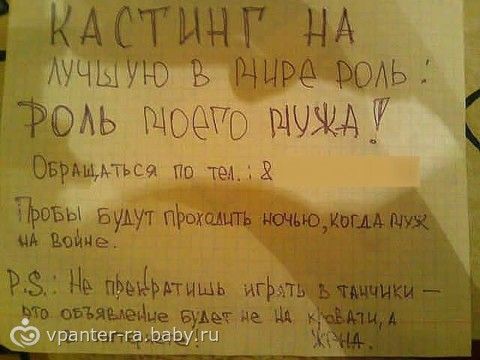 КАСТИНГ НА
ЛУЧШУЮ В МИРЕ РОЛЬ:
РОЛЬ МОЕГО МУЖА!
ОБРАЩАТЬСЯ ПО ТЕЛ.: 8
ПРОБЫ БУДУТ ПРОХОДИТЬ НОЧЬЮ, КОГДА МУЖ
НА ВОЙНЕ.
P.S.: НЕ ПРЕКРАТИШЬ ИГРАТЬ В ТАНЧИКИ —
ЭТО ОБЪЯВЛЕНИЕ БУДЕТ НЕ НА КРОВАТИ, А
ЖЕНА.
vpanter-ra.baby.ru